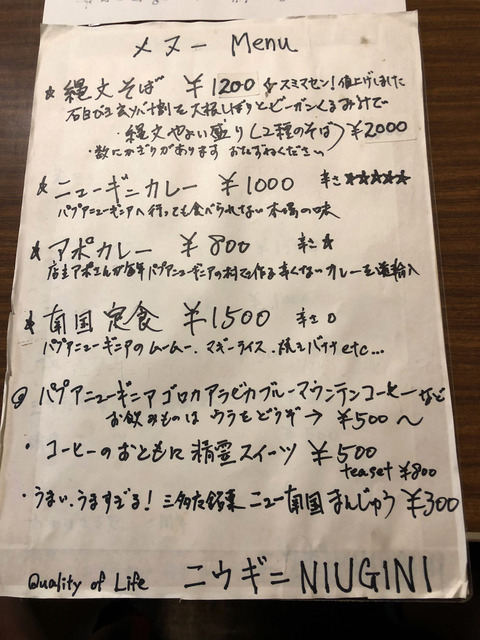 メヌー Menu
☆ 縄文そば ¥1200 スミマセン!値上げしました
石臼びき玄ソバ十割を大根しぼりとビーガンくるみ汁で
・縄文やよい盛り(2種のそば)¥2000
・数にかぎりがあります おたずねください
☆ ニューギニカレー ¥1000 辛さ★★★★★
パプアニューギニアへ行っても食べられない本場の味
☆ アポカレー ¥800 辛さ★
店主アポさんが毎年パプアニューギニアの村で作る辛くないカレーを逆輸入
☆ 南国定食 ¥1500 辛さ0
パプアニューギニアのムームー、マギーライス、焼きバナナetc...
◎ パプアニューギニアゴロカアラビカブルーマウンテンコーヒーなど
お飲みものはウラをどうぞ→ ¥500〜
・コーヒーのおともに精霊スイーツ ¥500
teaset ¥800
・うまい、うますぎる!三多摩銘菓 ニュー南国まんじゅう ¥300
Quality of Life ニウギニ NIUGINI